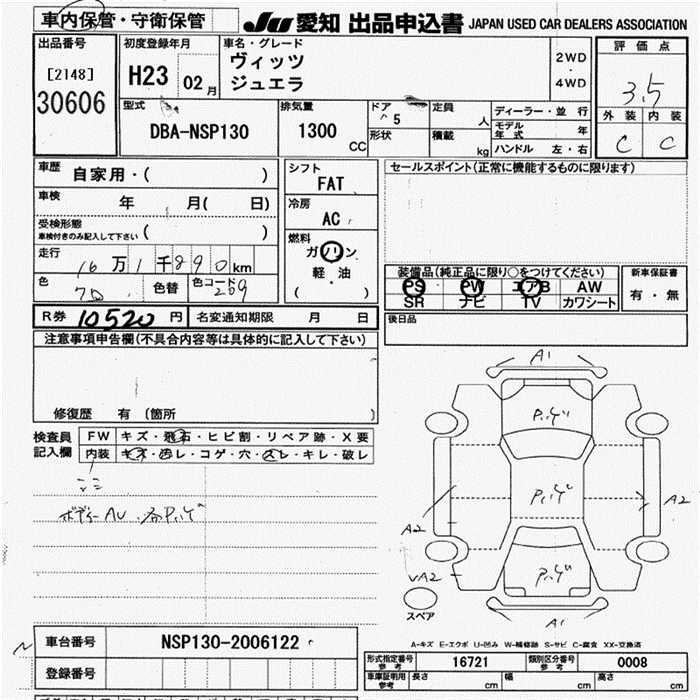 車内保管・守衛保管
JU 愛知 出品申込書 JAPAN USED CAR DEALERS ASSOCIATION
出品番号
[2148]
30606
初度登録年月
H23 02月
車名・グレード
ヴィッツ
ジュエラ
2WD
・
4WD
評価点
3.5
外装 内装
C C
型式
DBA-NSP130
排気量
1300 CC
ドア
5
形状
定員 人
積載 kg
ディーラー・並行
モデル年式 年
ハンドル 左・右
車歴 自家用・( )
車検 年 月( 日)
受検形態
車検付きのみ記入して下さい ( )
走行 16万1千890km
色 色替 色コード 209
シフト
FAT
冷房
AC
燃料
ガソリン
軽・油
( )
セールスポイント(正常に機能するものに限ります)
装備品(純正品に限り○をつけてください)
PS PW エアB AW
SR ナビ TV カワシート
新車保証書
有・無
後日品
R券 10520円 名変通知期限 月 日
注意事項申告欄(不具合内容等は具体的に記入して下さい)
修復歴 有 (箇所 )
検査員記入欄
FW キズ・飛石・ヒビ割・リペア跡・X要
内装 キズ・汚レ・コゲ・穴・スレ・キレ・破レ
ボディーAU
A1
A2
A2
VA2
A1
スペア
A-キズ E-エクボ U-凹み W-補修跡 S-サビ C-腐食 XX-交換済
車台番号 NSP130-2006122
登録番号
形式指定番号 参考 16721 類別区分番号 参考 0008
車庫証明用 参考 長さ cm 幅 cm 高さ cm